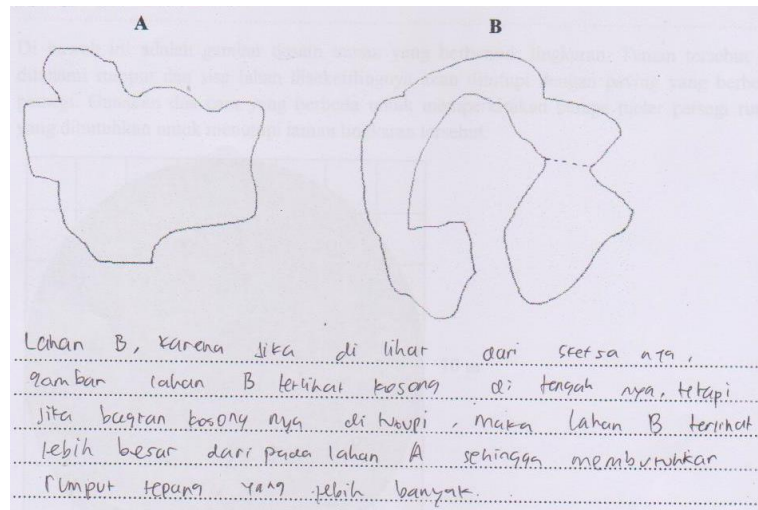 A B
Lahan B, karena jika di lihat dari sketsa nya,
gambar lahan B terlihat kosong di tengah nya, tetapi
jika bagian kosong nya di tutupi, maka lahan B terlihat
lebih besar dari pada lahan A sehingga membutuhkan
rumput tepang yang lebih banyak.